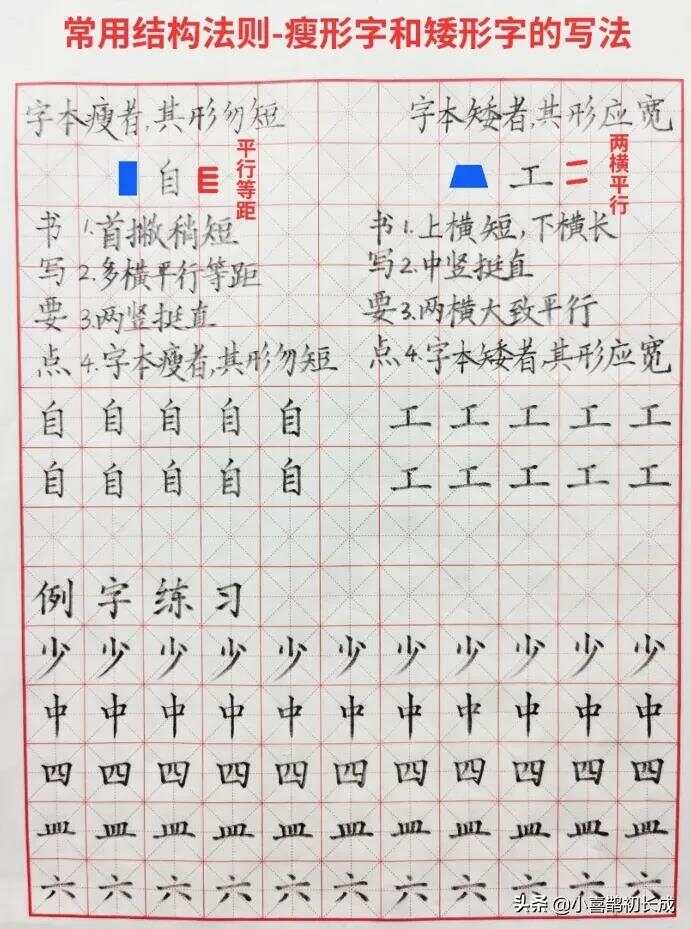 常用结构法则-瘦形字和矮形字的写法
字本瘦者,其形勿短 字本矮者,其形应宽
自 平行等距 工 两横平行
书写要点
1.首撇稍短
2.多横平行等距
3.两竖挺直
4.字本瘦者,其形勿短
书写要点
1.上横短,下横长
2.中竖挺直
3.两横大致平行
4.字本矮者,其形应宽
自自自自自 工工工工工
自自自自自 工工工工工
例字练习
少少少少少少少少少少少
中中中中中中中中中中中
四四四四四四四四四四四
皿皿皿皿皿皿皿皿皿皿皿
六六六六六六六六六六六
头条 @小喜鹊初长成